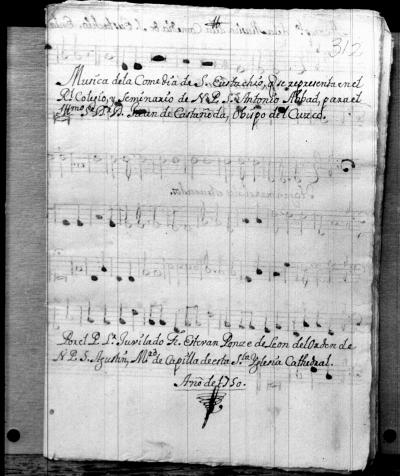 312
Musica dela Comedia de S. Eustachio, q. se representa en el
Rl. Colegio, y Seminario de N. P. S. Antonio Abbad, para el
Illmo. Sr. Dr. D. Juan de Castañeda, Obispo del Cuzco.
Por el P. Lr. Juvilado Fr. Estevan Ponze de Leon del Orden de
N. P. S. Agustin, Mro. de Capilla de esta Sta. Yglesia Cathedral.
Año de 1750.